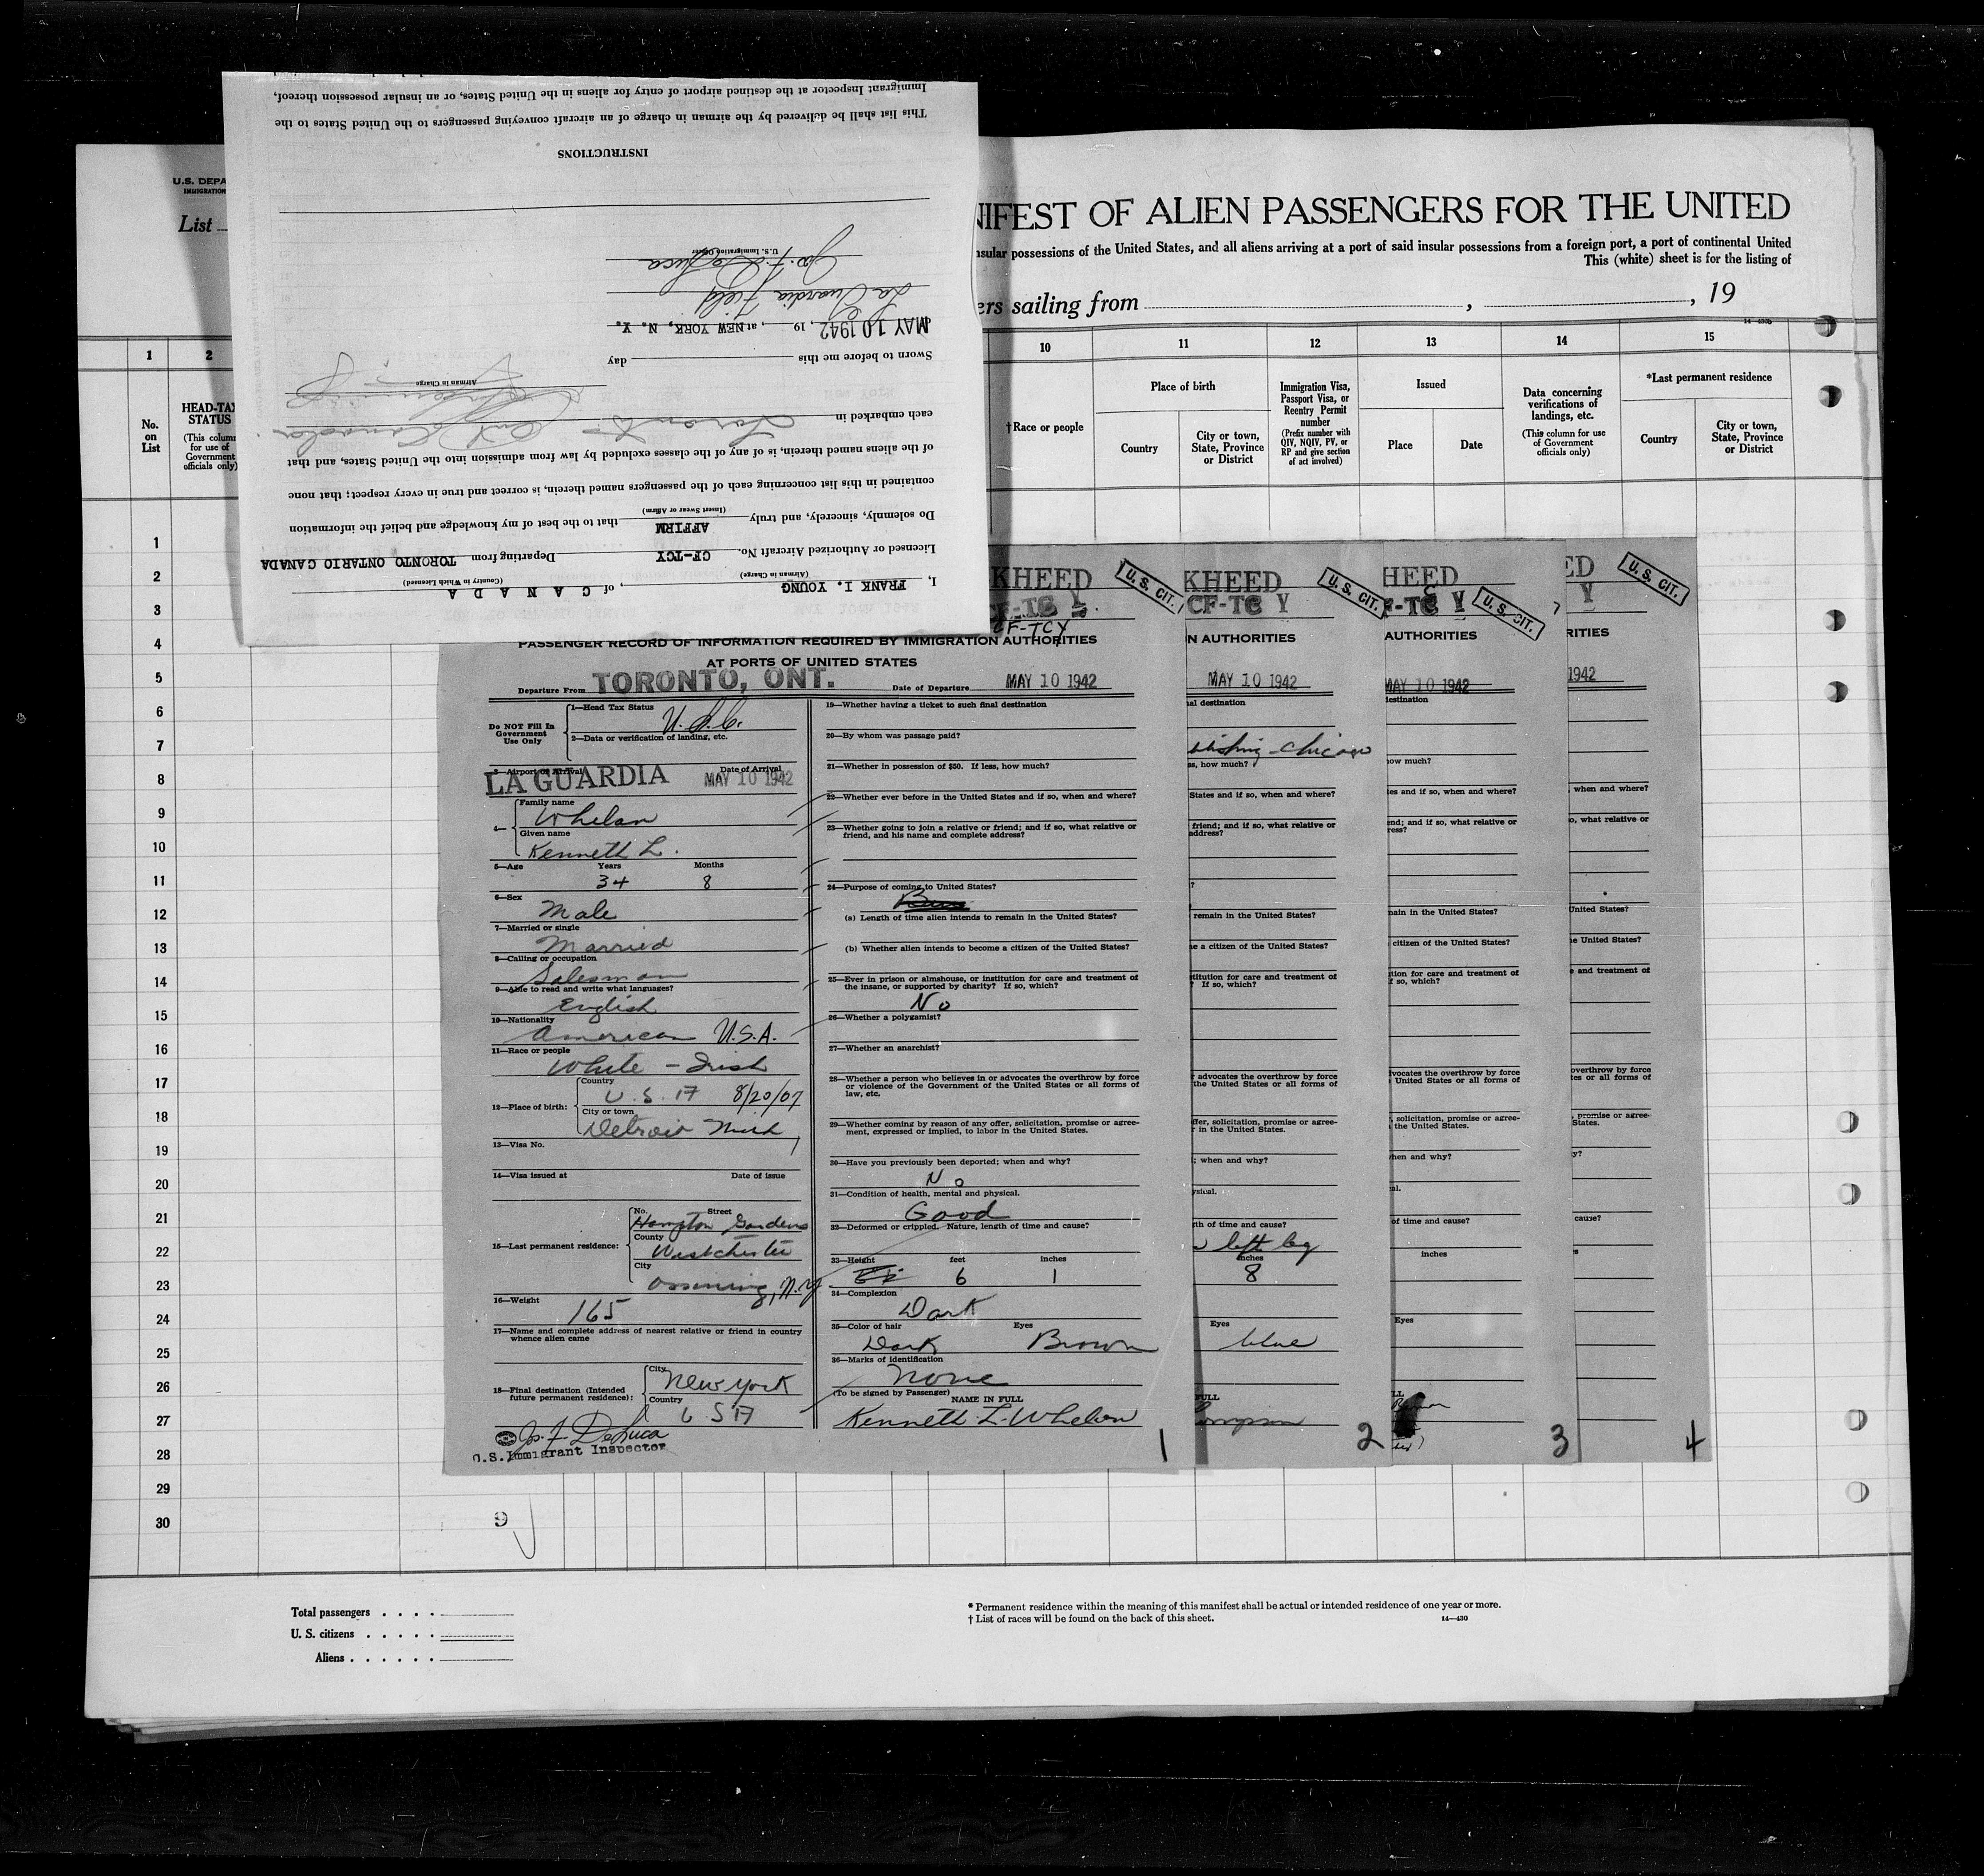 U.S. DEPA
IMMIGRATION
List
NIFEST OF ALIEN PASSENGERS FOR THE UNITED
insular possessions of the United States, and all aliens arriving at a port of said insular possessions from a foreign port, a port of continental United
This (white) sheet is for the listing of
ers sailing from , , 19
14—430b
1 2 10 11 12 13 14 15
No. on List
HEAD-TAX STATUS
(This column for use of Government officials only)
†Race or people
Place of birth
Country
City or town, State, Province or District
Immigration Visa, Passport Visa, or Reentry Permit number
(Prefix number with QIV, NQIV, PV, or RP and give section of act involved)
Issued
Place
Date
Data concerning verifications of landings, etc.
(This column for use of Government officials only)
*Last permanent residence
Country
City or town, State, Province or District
1
2
3
4
5
6
7
8
9
10
11
12
13
14
15
16
17
18
19
20
21
22
23
24
25
26
27
28
29
30
9
Total passengers . . . .
U. S. citizens . . . . .
Aliens . . . . . .
* Permanent residence within the meaning of this manifest shall be actual or intended residence of one year or more.
† List of races will be found on the back of this sheet.
14—430
I, FRANK I. YOUNG , of C A N A D A
(Airman in Charge) (Country in Which Licensed)
Licensed or Authorized Aircraft No. CF-TCY Departing from TORONTO ONTARIO CANADA
Do solemnly, sincerely, and truly AFFIRM that to the best of my knowledge and belief the information
(Insert Swear or Affirm)
contained in this list concerning each of the passengers named therein, is correct and true in every respect; that none
of the aliens named therein, is of any of the classes excluded by law from admission into the United States, and that
each embarked in Toronto Ont Canada.
Airman in Charge
Sworn to before me this day
MAY 10 1942 , 19 , at NEW YORK, N. Y.
La Guardia Field
Jos. F. DeLuca
U. S. Immigration Officer
INSTRUCTIONS
This list shall be delivered by the airman in charge of an aircraft conveying passengers to the United States to the
Immigrant Inspector at the destined airport of entry for aliens in the United States, or an insular possession thereof,
KHEED
CF-TC Y
CF-TCY
U. S. CIT.
PASSENGER RECORD OF INFORMATION REQUIRED BY IMMIGRATION AUTHORITIES
AT PORTS OF UNITED STATES
Departure From TORONTO, ONT. Date of Departure MAY 10 1942
Do NOT Fill In Government Use Only
1—Head Tax Status U.S.C.
2—Data or verification of landing, etc.
3—Airport of Arrival LA GUARDIA Date of Arrival MAY 10 1942
4— Family name Whelan
Given name Kenneth L.
5—Age Years 34 Months 8
6—Sex Male
7—Married or single Married
8—Calling or occupation Salesman
9—Able to read and write what languages? English
10—Nationality American U.S.A.
11—Race or people White - Irish
12—Place of birth: Country U.S.A 8/20/07
City or town Detroit Mich
13—Visa No.
14—Visa issued at Date of issue
15—Last permanent residence: No. Street Hampton Gardens
County Westchester
City Ossining, N.Y.
16—Weight 165
17—Name and complete address of nearest relative or friend in country
whence alien came
18—Final destination (Intended future permanent residence): City New York
Country U S A
Jos. F. DeLuca
U.S. Immigrant Inspector
19—Whether having a ticket to such final destination
20—By whom was passage paid?
21—Whether in possession of $50. If less, how much?
22—Whether ever before in the United States and if so, when and where?
23—Whether going to join a relative or friend; and if so, what relative or
friend, and his name and complete address?
24—Purpose of coming to United States?
(a) Length of time alien intends to remain in the United States?
(b) Whether alien intends to become a citizen of the United States?
25—Ever in prison or almshouse, or institution for care and treatment of
the insane, or supported by charity? If so, which?
No
26—Whether a polygamist?
27—Whether an anarchist?
28—Whether a person who believes in or advocates the overthrow by force
or violence of the Government of the United States or all forms of
law, etc.
29—Whether coming by reason of any offer, solicitation, promise or agree-
ment, expressed or implied, to labor in the United States.
30—Have you previously been deported; when and why?
No
31—Condition of health, mental and physical.
Good
32—Deformed or crippled. Nature, length of time and cause?
33—Height feet 6 inches 1
34—Complexion Dark
35—Color of hair Dark Eyes Brown
36—Marks of identification None
(To be signed by Passenger) NAME IN FULL
Kenneth L. Whelan
1
KHEED
CF-TC Y
U. S. CIT.
N AUTHORITIES
MAY 10 1942
al destination
blishing - Chicago
s, how much?
States and if so, when and where?
friend; and if so, what relative or
address?
?
remain in the United States?
e a citizen of the United States?
titution for care and treatment of
? If so, which?
advocates the overthrow by force
the United States or all forms of
ffer, solicitation, promise or agree-
r in the United States.
; when and why?
ysical.
th of time and cause?
left leg
inches
8
Eyes
blue
FULL
ompson
2
HEED
F-TC Y
U. S. CIT.
AUTHORITIES
MAY 10 1942
destination
ow much?
es and if so, when and where?
end; and if so, what relative or
ress?
ain in the United States?
citizen of the United States?
tion for care and treatment of
f so, which?
vocates the overthrow by force
United States or all forms of
, solicitation, promise or agree-
the United States.
hen and why?
al.
of time and cause?
inches
Eyes
LL
3
ED
Y
U. S. CIT.
RITIES
1942
, when and where?
o, what relative or
United States?
e United States?
e and treatment of
overthrow by force
tes or all forms of
, promise or agree-
States.
y?
cause?
s
4